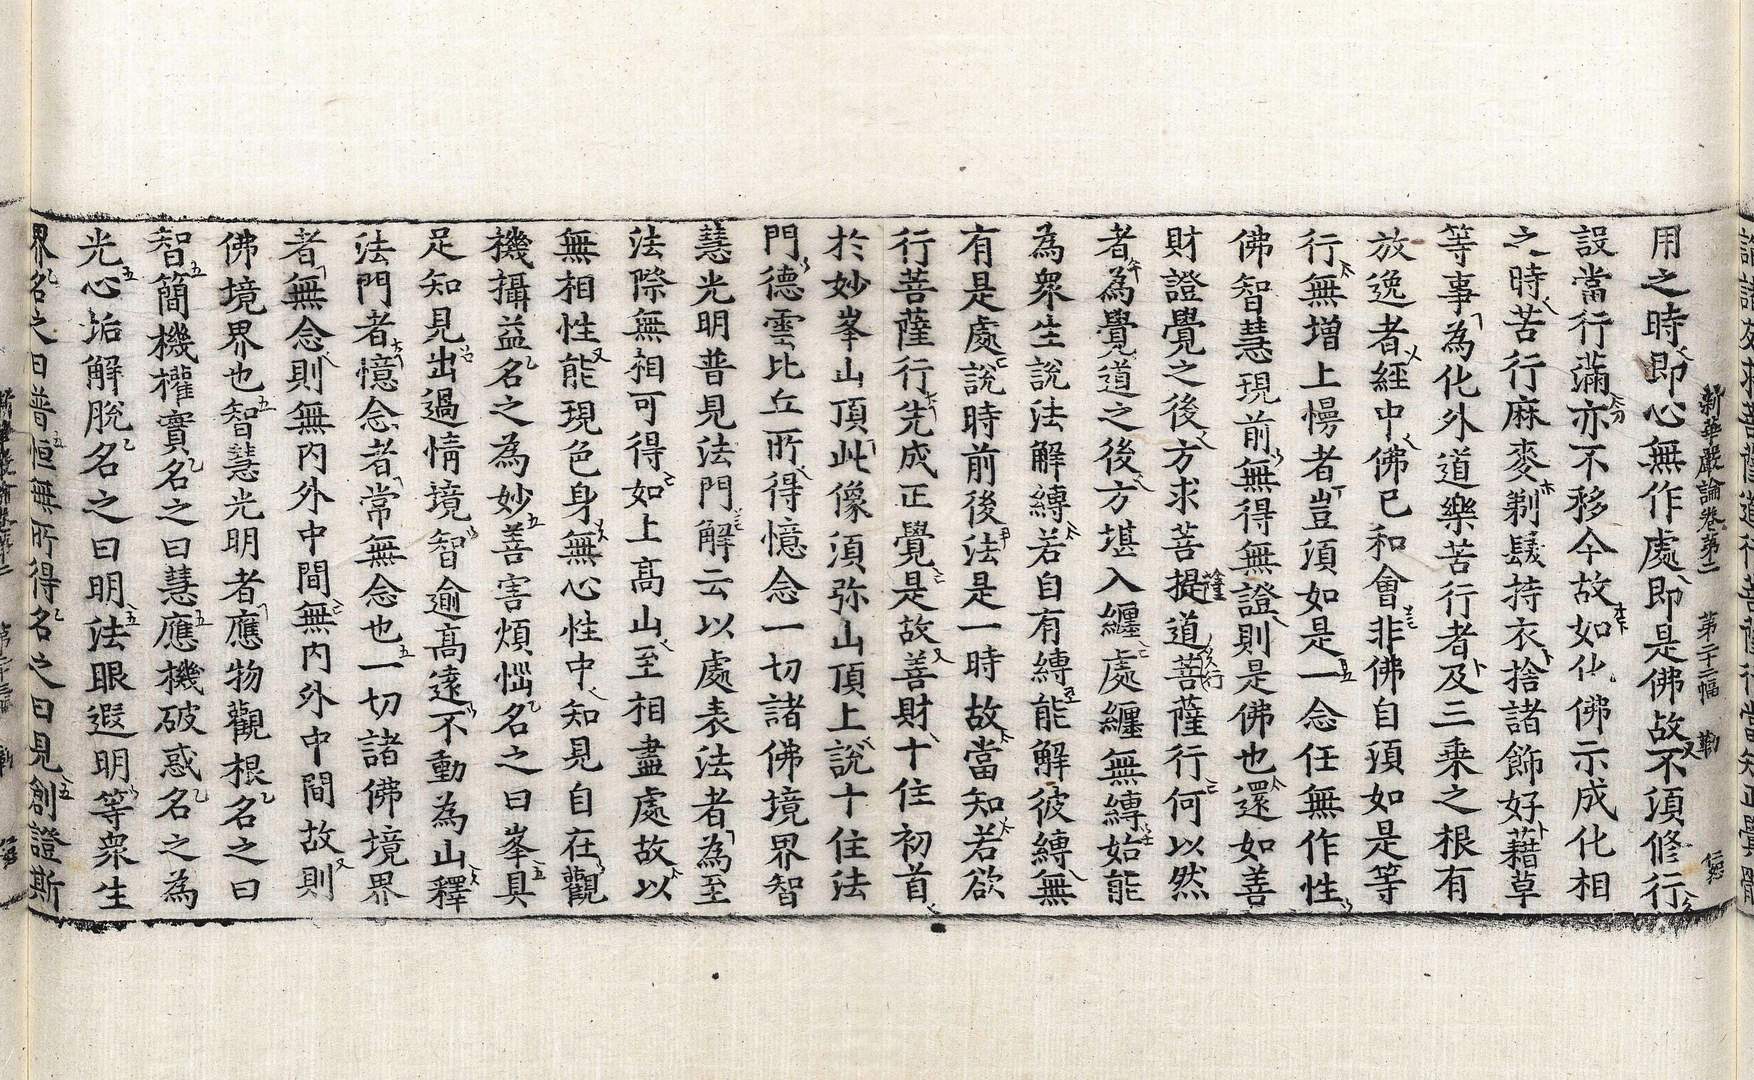 新華嚴論卷第二 第二十二幅 勒
用之時即心無作處即是佛故不湏修行
設當行滿亦不移今故如化佛示成化相
之時苦行麻麥剃䰂持衣捨諸飾好藉草
等事為化外道樂苦行者及三乗之根有
放逸者経中佛已和會非佛自湏如是等
行無增上慢者豈須如是一念任無作性
佛智慧現前無得無證則是佛也還如善
財證覺之後方求菩提道菩薩行何以然
者為覺道之後方堪入纏處纏無縛始能
為衆生說法解縛若自有縛能解彼縛無
有是處說時前後法是一時故當知若欲
行菩薩行先成正覺是故善財十住初首
於妙峯山頂此像須弥山頂上說十住法
門德雲比丘所得憶念一切諸佛境界智
慧光明普見法門解云以處表法者為至
法際無相可得如上高山至相盡處故以
無相性能現色身無心性中知見自在觀
機攝益名之為妙善害煩惱名之曰峯具
足知見出過情境智逾高遠不動為山釋
法門者憶念者常無念也一切諸佛境界
者無念則無內外中間無內外中間故則
佛境界也智慧光明者應物觀根名之曰
智簡機權實名之曰慧應機破惑名之為
光心垢解脫名之曰明法眼遐明等衆生
界名之曰普恒無所得名之曰見創證斯